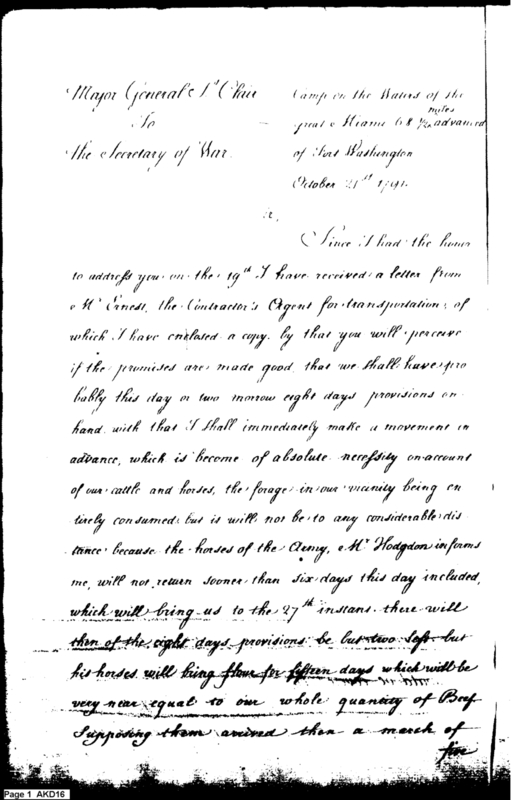 Major General St Clair
To
The Secretary of War.
Camp on the Waters of the
great Miami 68 1/2 miles advanced
of Fort Washington
October 21st 1791.
Sir,
Since I had the honor
to address you on the 19th I have received a letter from
Mr Ernest, the Contractor's Agent for transportation, of
which I have enclosed a copy. by that you will perceive
if the promises are made good, that we shall have pro
bably this day or two morrow eight days provisions on
hand. with that I shall immediately make a movement in
advance, which is become of absolute necessity on account
of our cattle and horses, the forage in our vicinity being en
tirely consumed; but is will not be to any considerable dis
tance; because the horses of the Army, Mr Hodgdon informs
me, will not return sooner than six days this day included,
which will bring us to the 27th instant. there will
then of the eight days provisions be but two left but
his horses will bring flour for fifteen days which will be
very near equal to our whole quantity of Beef
Supposing them arrived then a march of
five
Page 1 AKD16